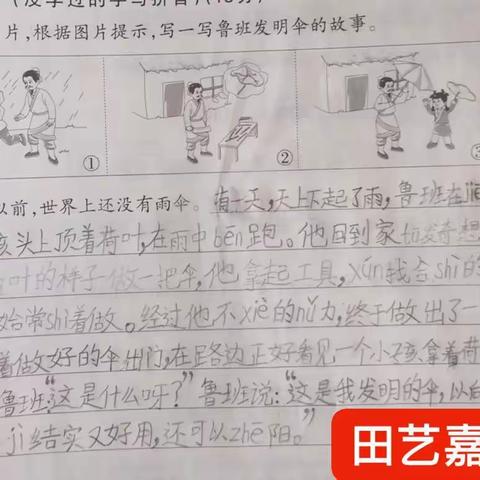 (没学过的字写拼音)(10分)
片,根据图片提示,写一写鲁班发明伞的故事。
① ② ③
以前,世界上还没有雨伞。有一天,天上下起了雨,鲁班在jiē
孩头上顶着荷叶,在雨中bēn跑。他回到家
叶的样子做一把伞,他拿起工具,xún找合shì的
始常shì着做。经过他不xiè的nǔ力,终于做出了一
着做好的伞出门,在路边正好看见一个小孩拿着荷
鲁班:“这是什么呀?”鲁班说:“这是我发明的伞,以后
jì结实又好用,还可以zhē阳。”
田艺嘉